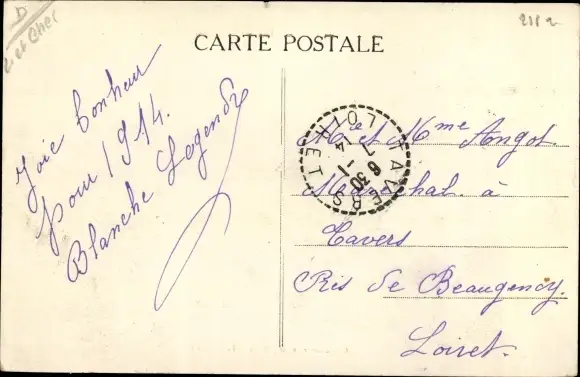 D
L et Cher
218 a
CARTE POSTALE
Joie bonheur
pour 1914.
Blanche Legendre
TAVERS
LOIRET
6 30 - 1
14
Mr et Mme Angot
Maréchal à
Tavers
Près de Beaugency.
Loiret.